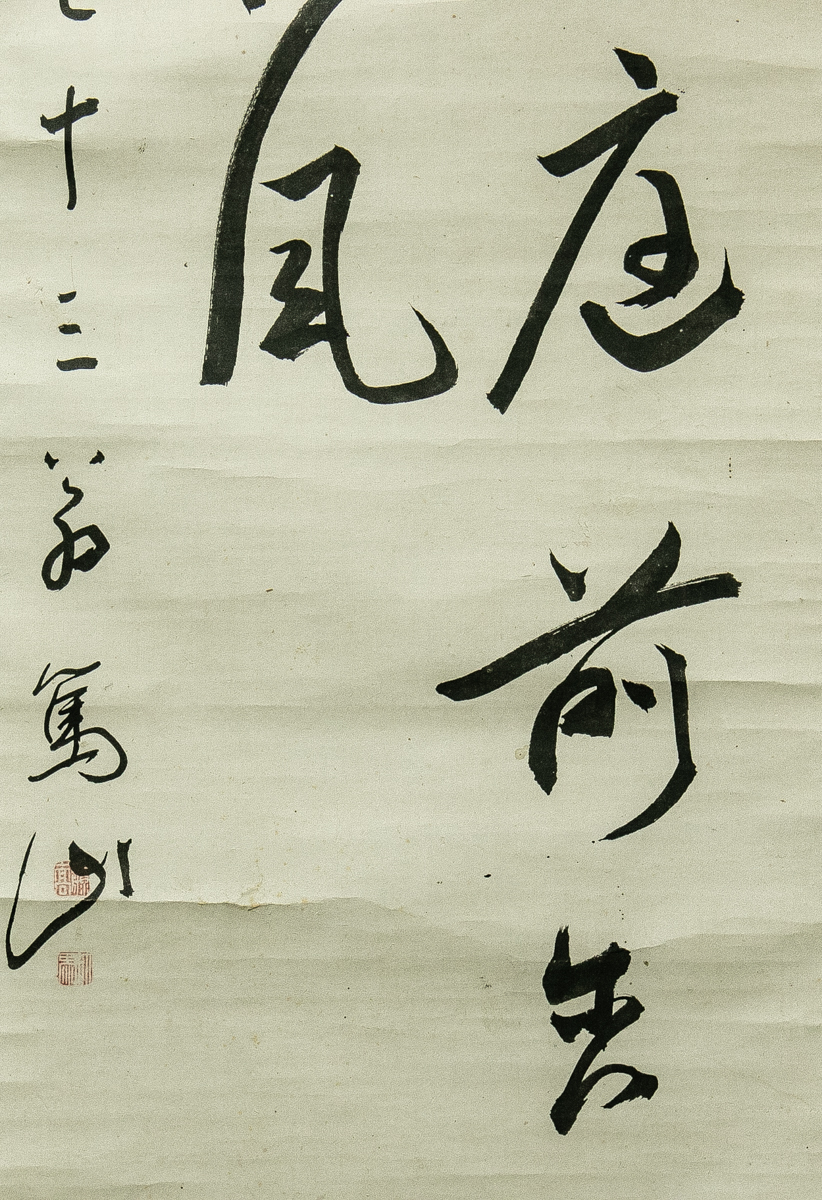 庭前香
風
十三翁篤山